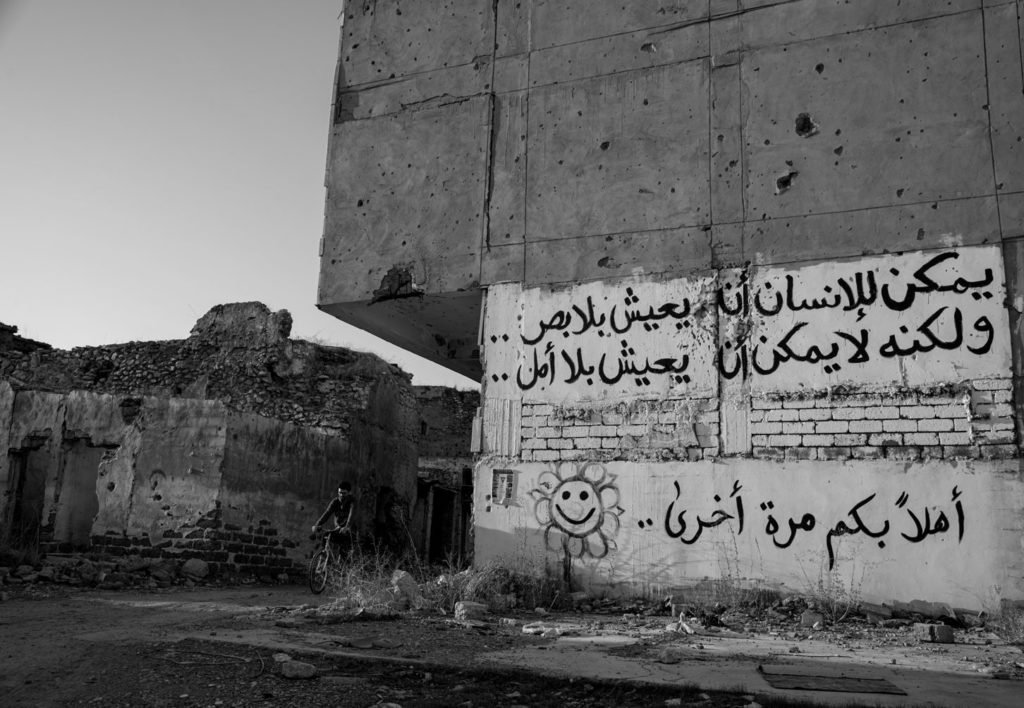 يمكن للإنسان أن يعيش بلا بصر ..
ولكنه لا يمكن أن يعيش بلا أمل ..
أهلاً بكم مرة أخرىٰ ..